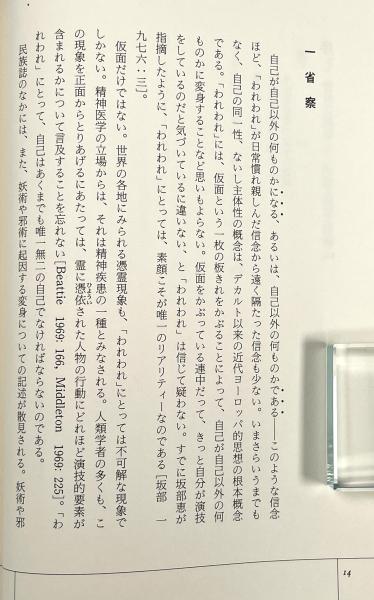 一 省察
自己が自己以外の何ものかになる、あるいは、自己以外の何ものかである——このような信念
ほど、「われわれ」が日常慣れ親しんだ信念から遠く隔たった信念も少ない。いまさらいうまでも
なく、自己の同一性、ないし主体性の概念は、デカルト以来の近代ヨーロッパ的思想の根本概念
である。「われわれ」には、仮面という一枚の板きれをかぶることによって、自己が自己以外の何
ものかに変身することなど思いもよらない。仮面をかぶっている連中だって、きっと自分が演技
をしているのだと気づいているに違いない、と「われわれ」は信じて疑わない。すでに坂部恵が
指摘したように、「われわれ」にとっては、素顔こそが唯一のリアリティーなのである[坂部 一
九七六:三]。
仮面だけではない。世界の各地にみられる憑霊現象も、「われわれ」にとっては不可解な現象で
しかない。精神医学の立場からは、それは精神疾患の一種とみなされる。人類学者の多くも、こ
の現象を正面からとりあげるにあたっては、霊に憑依ひょういされた人物の行動にどれほど演技的要素が
含まれるかについて言及することを忘れない[Beattie 1969: 166, Middleton 1969: 225]。「わ
れわれ」にとって、自己はあくまでも唯一無二の自己でなければならないのである。
民族誌のなかには、また、妖術や邪術に起因する変身についての記述が散見される。妖術や邪
14